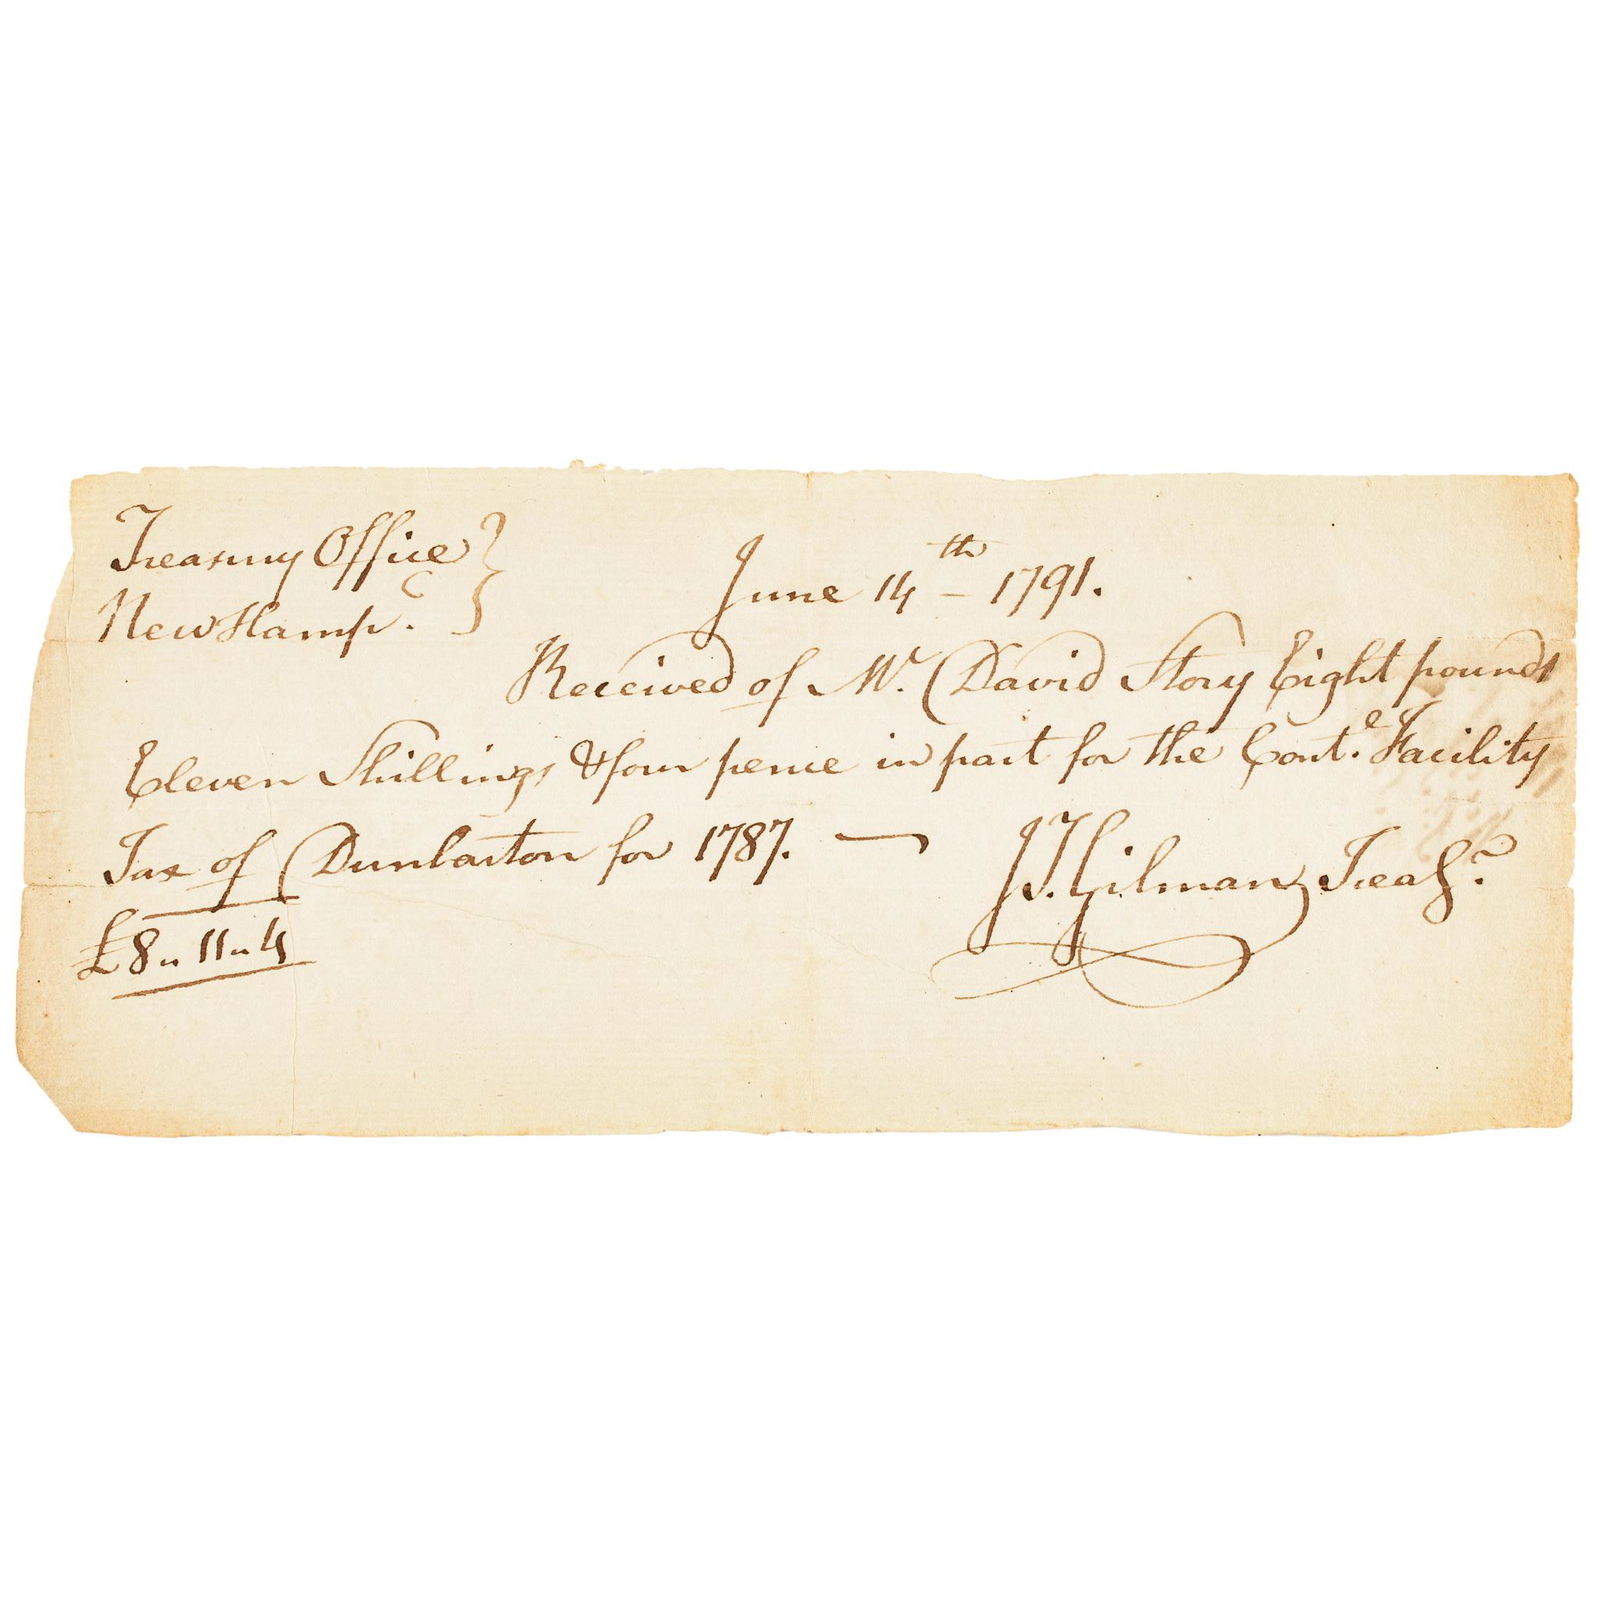 Treasury Office }
New Hamp.e }
June 14th – 1791.
Received of Mr. David Story Eight pounds
Eleven Shillings & four pence in part for the Cont.e Facility
Tax of Dunbarton for 1787. —
J T Gilman Treasr.
£8 " 11 " 4